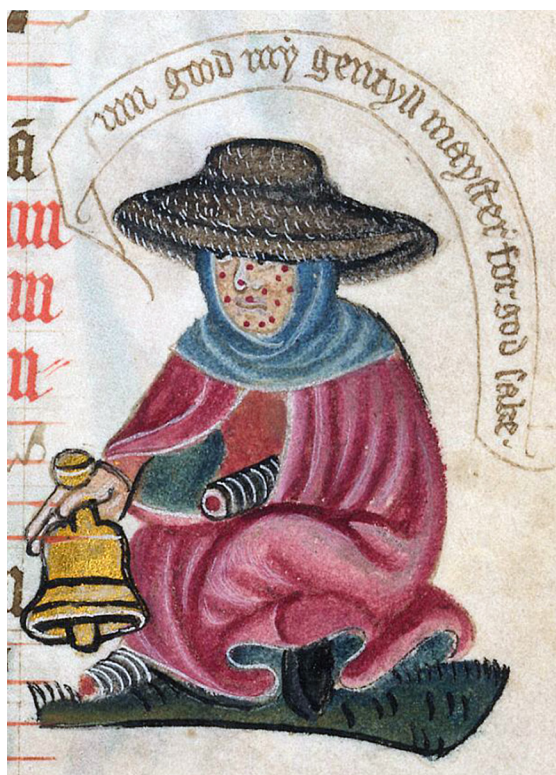 sum good my gentyll mayster for god sake.